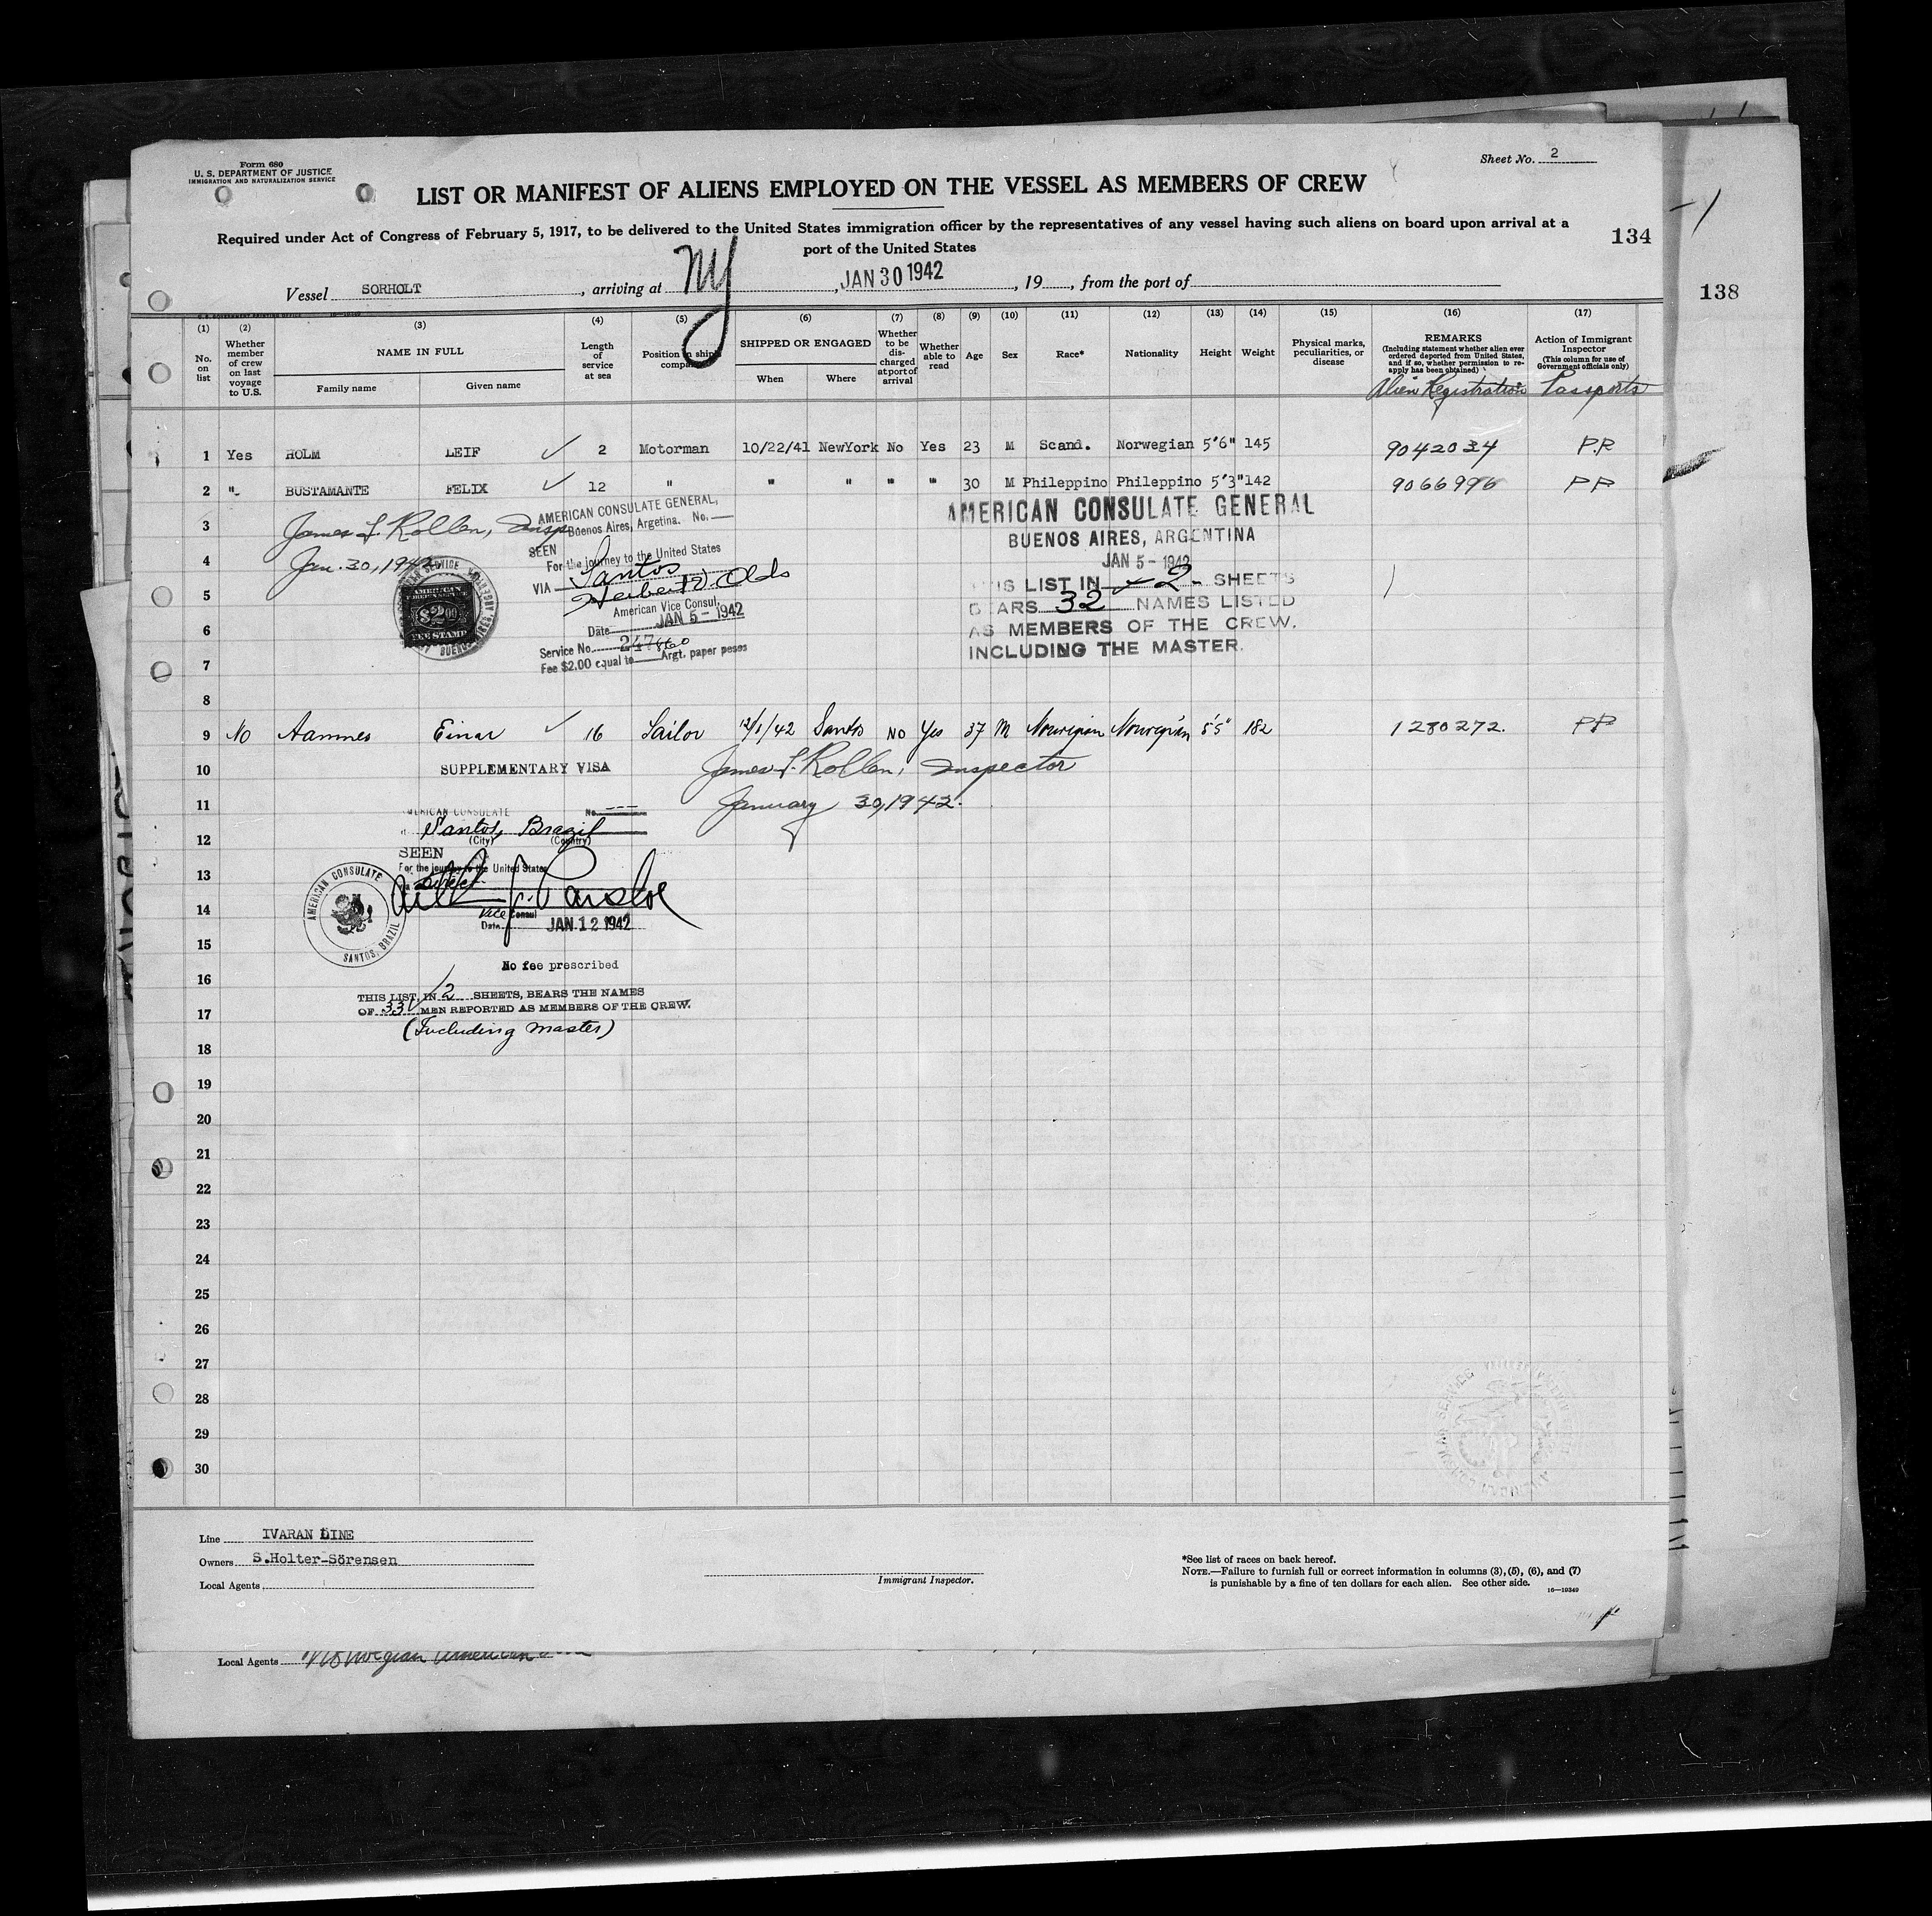 Form 680
U. S. DEPARTMENT OF JUSTICE
IMMIGRATION AND NATURALIZATION SERVICE
Sheet No. 2
LIST OR MANIFEST OF ALIENS EMPLOYED ON THE VESSEL AS MEMBERS OF CREW
Required under Act of Congress of February 5, 1917, to be delivered to the United States immigration officer by the representatives of any vessel having such aliens on board upon arrival at a
port of the United States
134
138
Vessel SORHOLT, arriving at NY, JAN 30 1942, 19, from the port of
(1) (2) (3) (4) (5) (6) (7) (8) (9) (10) (11) (12) (13) (14) (15) (16) (17)
No. on list
Whether member of crew on last voyage to U.S.
NAME IN FULL
Family name
Given name
Length of service at sea
Position in ship's company
SHIPPED OR ENGAGED
When
Where
Whether to be discharged at port of arrival
Whether able to read
Age
Sex
Race*
Nationality
Height
Weight
Physical marks, peculiarities, or disease
REMARKS
(Including statement whether alien ever ordered deported from United States, and if so, whether permission to re-apply has been obtained)
Alien Registration
Action of Immigrant Inspector
(This column for use of Government officials only)
Passports
1 Yes HOLM LEIF ✓ 2 Motorman 10/22/41 NewYork No Yes 23 M Scand. Norwegian 5'6" 145 9042034 P.P
2 " BUSTAMANTE FELIX ✓ 12 " " " " " 30 M Phileppino Phileppino 5'3" 142 9066996 PP
3 James L. Rollen, Insp
4 Jan. 30, 1942
5
6
7
8
AMERICAN FOREIGN SERVICE
$2.00
FEE STAMP
AMERICAN CONSULATE GENERAL,
Buenos Aires, Argetina. No. —
SEEN
For the journey to the United States
VIA Santos
Herbert D. Olds
American Vice Consul,
Date JAN 5 - 1942
Service No. 247
Fee $2.00 equal to Argt. paper pesos
AMERICAN CONSULATE GENERAL
BUENOS AIRES, ARGENTINA
JAN 5 - 1942
THIS LIST IN 2 SHEETS
BEARS 32 NAMES LISTED
AS MEMBERS OF THE CREW.
INCLUDING THE MASTER.
9 No Aamnes Einar ✓ 16 Sailor 12/1/42 Santos NO Yes 37 M Norwegian Norwegian 5'5" 182 1280272. PP
10 SUPPLEMENTARY VISA James L. Rollen, Inspector
11 January 30, 1942.
AMERICAN CONSULATE No. ---
12 Santos, Brazil
(City) (Country)
SEEN
13 For the journey to the United States
direct
14 Vice Consul
Date JAN 12 1942
AMERICAN CONSULATE
SANTOS, BRAZIL
15
No fee prescribed
16
THIS LIST, IN 2 SHEETS, BEARS THE NAMES
17 OF 33 MEN REPORTED AS MEMBERS OF THE CREW.
(Including master)
18
19
20
21
22
23
24
25
26
27
28
29
30
Line IVARAN LINE
Owners S.Holter-Sörensen
Local Agents
Immigrant Inspector.
*See list of races on back hereof.
NOTE.—Failure to furnish full or correct information in columns (3), (5), (6), and (7)
is punishable by a fine of ten dollars for each alien. See other side.
16—19349
Local Agents Norwegian American